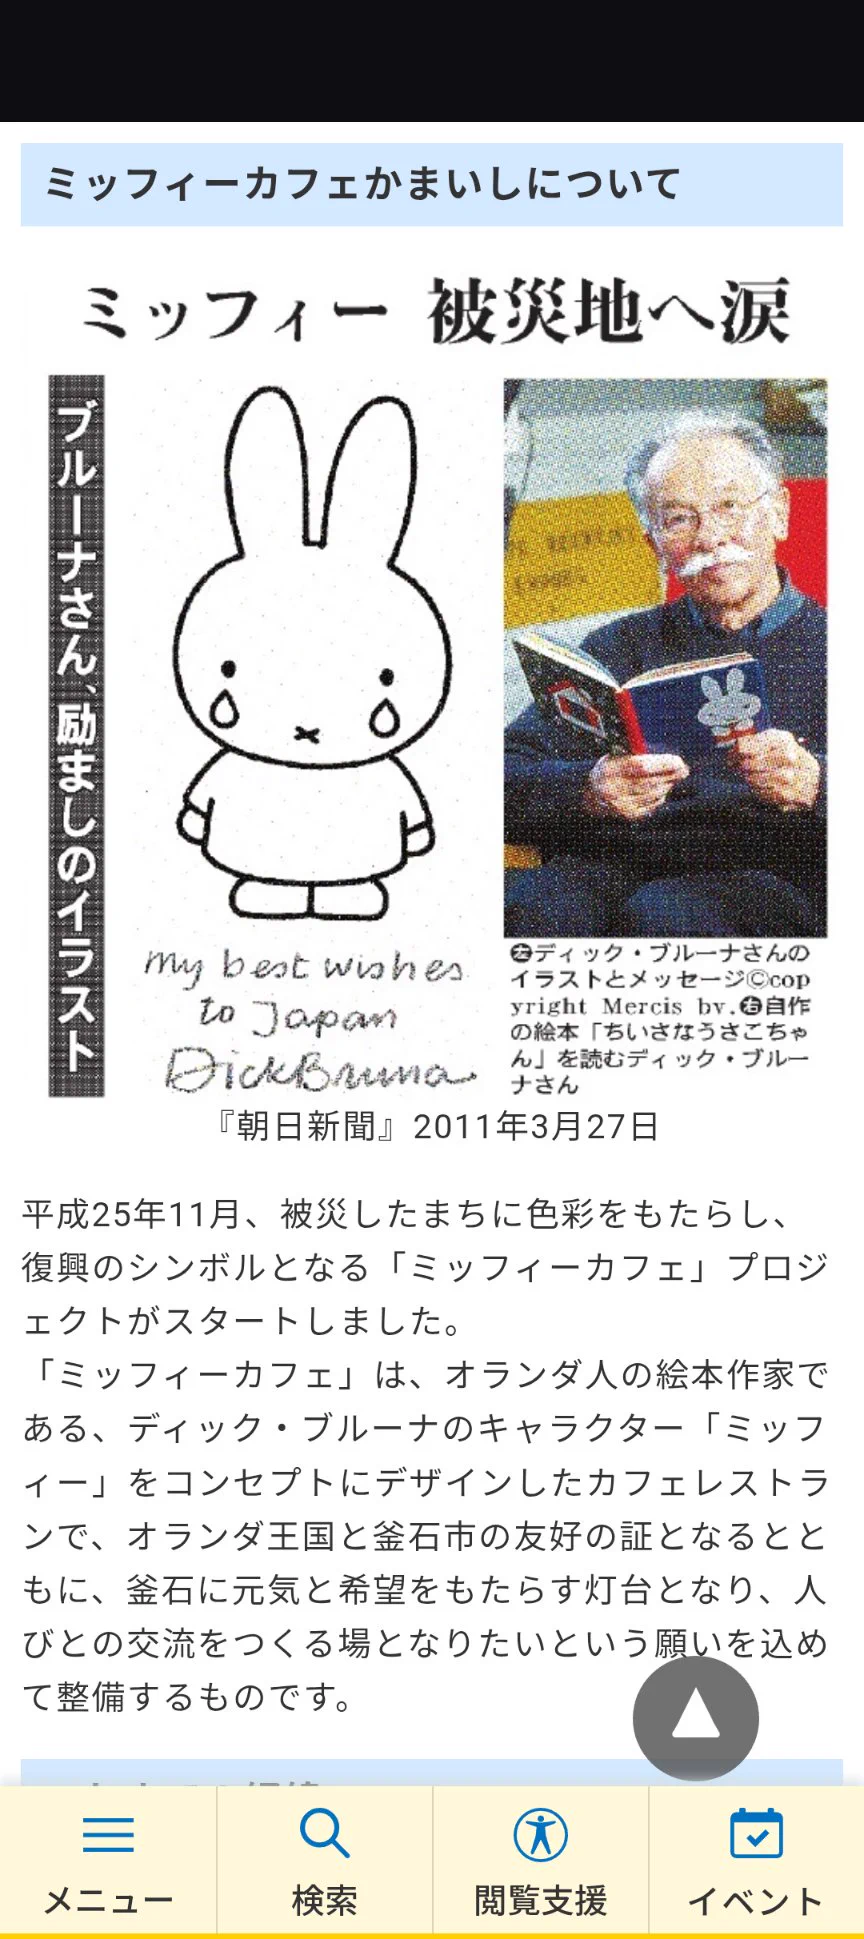 ミッフィーカフェかまいしについて
ミッフィー 被災地へ涙
ブルーナさん、励ましのイラスト
my best wishes
to Japan
Dick Bruna
㊧ディック・ブルーナさんの
イラストとメッセージⒸcop
yright Mercis bv.㊨自作
の絵本「ちいさなうさこちゃ
ん」を読むディック・ブルー
ナさん
『朝日新聞』2011年3月27日
平成25年11月、被災したまちに色彩をもたらし、
復興のシンボルとなる「ミッフィーカフェ」プロジ
ェクトがスタートしました。
「ミッフィーカフェ」は、オランダ人の絵本作家で
ある、ディック・ブルーナのキャラクター「ミッフ
ィー」をコンセプトにデザインしたカフェレストラ
ンで、オランダ王国と釜石市の友好の証となるとと
もに、釜石に元気と希望をもたらす灯台となり、人
びとの交流をつくる場となりたいという願いを込め
て整備するものです。
メニュー
検索
閲覧支援
イベント